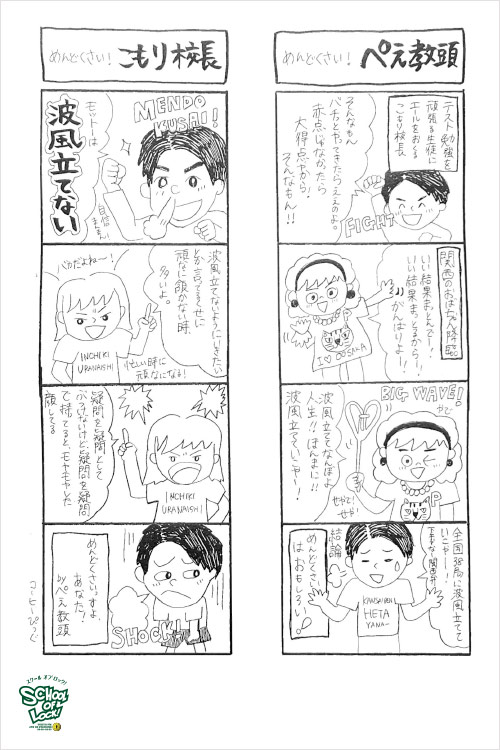 めんどくさい！ぺえ教頭
テスト勉強を
頑張る生徒に
エールをおくる
こもり校長
そんなもん
パチっとやってきたらええのよ。
赤点はななったら
大得点やから。
そんなもん！！
FIGHT
関西のおばちゃん降臨。
いい結果まっとんでー！
いい結果まっとるからー！
がんばりよー！
I ♡ OOSAKA
BIG WAVE!
波風立てなんぼよ
人生！！ほんまに！！
波風立てていこやー！
せやで！
せや！
P
全国35局に波風立てて
いこやー！
下手な関西弁
結論
めんどくさい
はおもしろい
KANSAIBEN
HETA
YANA-
めんどくさい！こもり校長
MENDO
KUSAI!
モットーは
波風立てない
自信
まんまん
波風立てないようにいきたい
とか言ってるくせに
頑なに譲かない時
多いよ。
バカだよねー！
忙しい時に
頑なになる！
INCHIKI
URANAISHI
疑問を疑問として
ぶつけないけど、疑問を疑問
で捨てると、モヤモヤした
顔してる
INCHIKI
URANAISHI
めんどくさいっすよ、
あなた！
byぺえ教頭
SHOCK!
コーヒーぴっぐ
スクール オブ ロック！
SCHOOL
OF
LOCK!